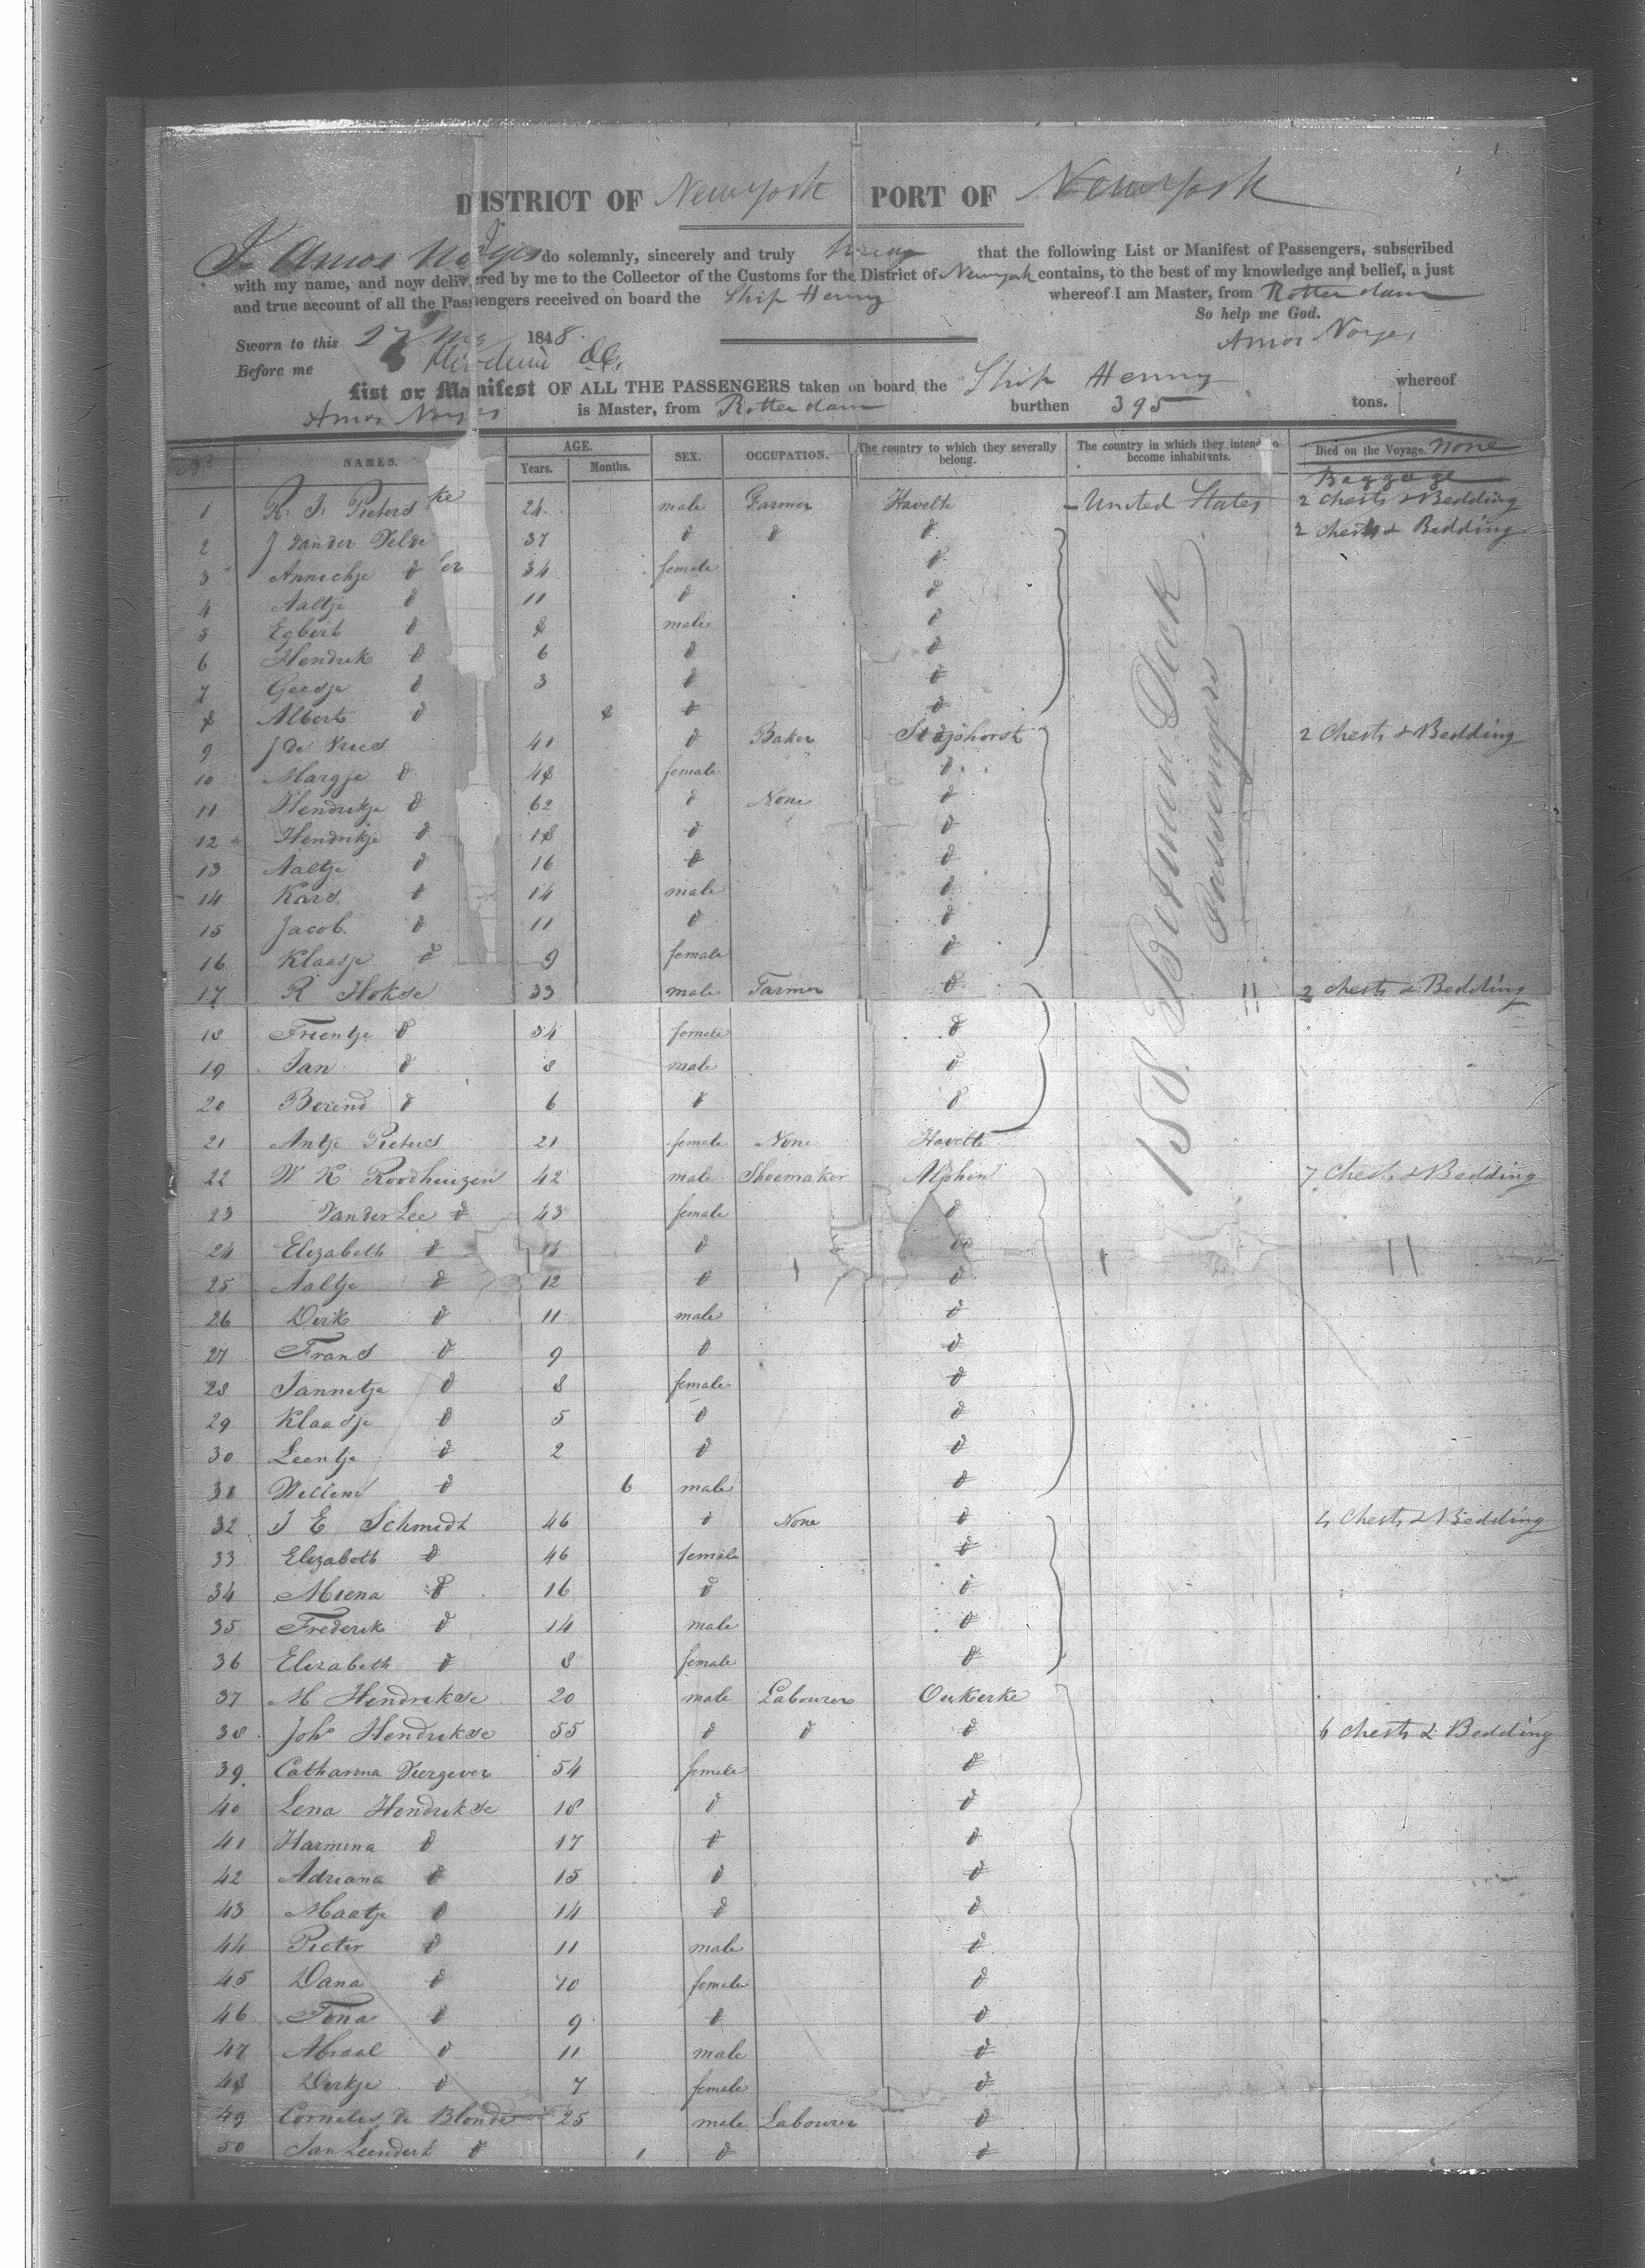 DISTRICT OF New York PORT OF New York
I Amos Noyes do solemnly, sincerely and truly swear that the following List or Manifest of Passengers, subscribed
with my name, and now delivered by me to the Collector of the Customs for the District of New York contains, to the best of my knowledge and belief, a just
and true account of all the Passengers received on board the Ship Henry whereof I am Master, from Rotterdam
So help me God.
Sworn to this 27 1848. Amos Noyes
Before me
List or Manifest OF ALL THE PASSENGERS taken on board the Ship Henry whereof
Amos Noyes is Master, from Rotterdam burthen 395 tons.
No NAMES. AGE. Years. Months. SEX. OCCUPATION. The country to which they severally belong. The country in which they intend to become inhabitants. Died on the Voyage. None
Baggage
1 R. J. Pieters 24 male Farmer Havelte - United States 2 Chests & Bedding
2 J Vander Velde 37 d d d 2 Chests & Bedding
3 Annechje d 34 female d
4 Aaltje d 11 d d
5 Egbert d 8 male d
6 Hendrik d 6 d d
7 Geesje d 3 d d
8 Albert d 8 d d
9 J de Vries 41 d Baker Staphorst 2 Chests & Bedding
10 Margje d 48 female d
11 Hendrikje d 62 d None d
12 Hendrikje d 18 d d
13 Aaltje d 16 d d
14 Kars d 14 male d
15 Jacob. d 11 d d
16 Klaasje d 9 female d
17 R Hokse 33 male Farmer d 2 Chests & Bedding
18 Frientje d 34 female d
19 Jan d 8 male d
20 Berend d 6 d d
21 Antje Pieters 21 female None Havelte
22 W K Roodhuizen 42 male Shoemaker Alphen 7 Chests & Bedding
23 Vander Lee d 43 female d
24 Elizabeth d 14 d d
25 Aaltje d 12 d d
26 Dirk d 11 male d
27 Frans d 9 d d
28 Jannetje d 8 female d
29 Klaasje d 5 d d
30 Leentje d 2 d d
31 Willem d 6 male d
32 J E Schmidt 46 d None d 4 Chests & Bedding
33 Elizabeth d 46 female d
34 Miena d 16 d d
35 Frederik d 14 male d
36 Elizabeth d 8 female d
37 M Hendrikse 20 male Labourer Oukerke
38 Johs Hendrikse 55 d d d 6 Chests & Bedding
39 Catharina Viergever 54 female d
40 Lena Hendrikse 18 d d
41 Harmina d 17 d d
42 Adriana d 15 d d
43 Maatje d 14 d d
44 Pieter d 11 male d
45 Dana d 10 female d
46 Tona d 9 d d
47 d 11 male d
48 Dirkje d 7 female d
49 Cornelis de Blonde 25 male Labourer d
50 Jan Leendert d 1 d d
158 Between Deck
Passengers